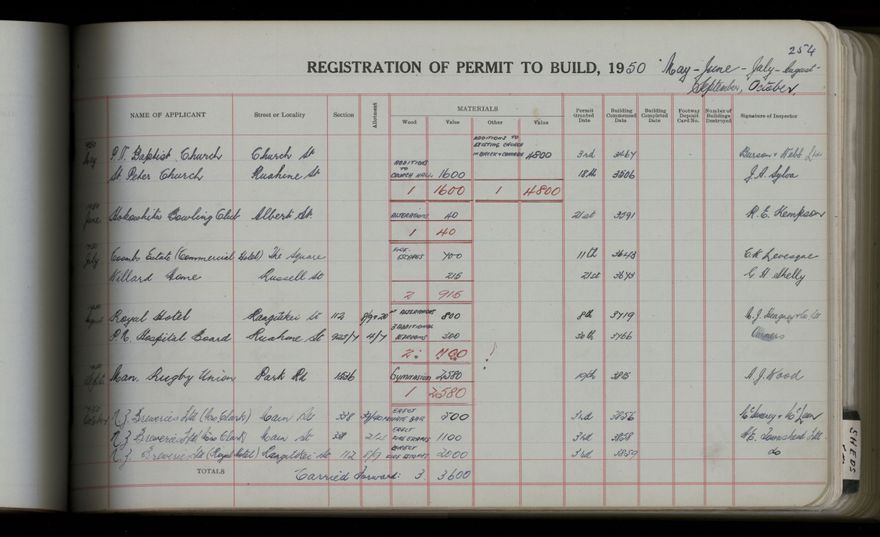 254
REGISTRATION OF PERMIT TO BUILD, 1950 May - June - July - August -
September, October.
NAME OF APPLICANT Street or Locality Section Allotment MATERIALS Permit Granted Date Building Commenced Date Building Completed Date Footway Deposit Card No. Number of Buildings Destroyed Signature of Inspector
Wood Value Other Value
1950
July P.N. Baptist Church Church St ADDITIONS TO EXISTING CHURCH IN BRICK & CONCRETE 4800 3rd 3467
St. Peter Church Ruahine St ADDITIONS TO CHURCH HALL 1600 18th 3506 J.A. Sylva
1 1600 1 4800
1950
June Hokowhitu Bowling Club Albert St. ALTERATIONS 40 21st 3591 R.E. Kempson
1 40
1950
July Coombs Estate (Commercial Hotel) The Square FIRE ESCAPES 700 11th 3643 E.R. Levesque
Willard Home Russell St 215 21st 3673 G H Shelly
2 915
August Royal Hotel Rangitikei St 112 ALTERATIONS 800 8th 3719
P.N. Hospital Board Ruahine St 3 ADDITIONAL BEDROOMS 30th 3766
2
Man. Rugby Union Park Rd Gymnasium 2580 19th A.J. Wood
1 2580
October N.Z. Breweries Ltd (Cafe Clark) Main St 338 ERECT PRIVATE BAR 500 3rd 3856
N.Z. Breweries Ltd Main St 338 ERECT FIRE ESCAPES 1100 3rd 3858 Townshend Ltd
N.Z. Breweries Ltd (Royal Hotel) Rangitikei St 112 ERECT FIRE ESCAPES 2000 3rd 3859 do
TOTALS Carried Forward: 3 3600
SHEDS